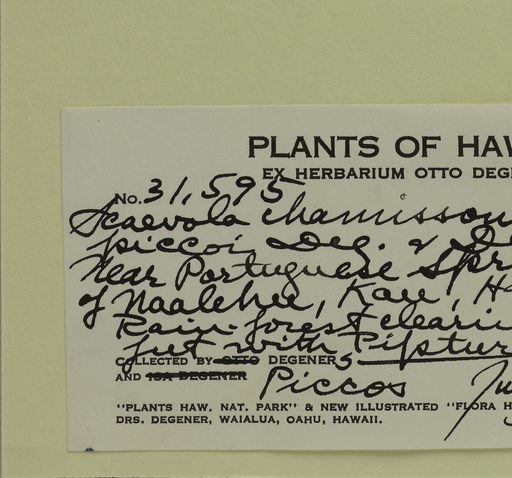 PLANTS OF HAW
EX HERBARIUM OTTO DEGE
No. 31,595
Scaevola chamisson
piccoi Deg. & De
Near Portuguese Spr
of Naalehu, Kau, H
Rain-forest clearin
with Piptur
COLLECTED BY OTTO DEGENERs
AND ISA DEGENER Piccos Ju
"PLANTS HAW. NAT. PARK" & NEW ILLUSTRATED "FLORA H
DRS. DEGENER, WAIALUA, OAHU, HAWAII.